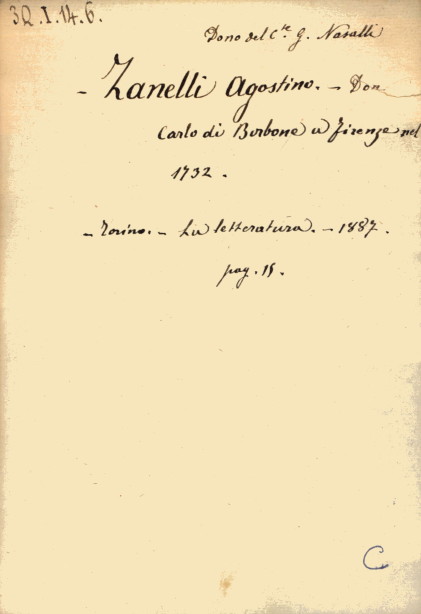 3Q.I.14.6.
Dono del Cte G. Nasalli
- Zanelli Agostino. - Don
Carlo di Borbone a Firenze nel
1732.
- Torino. - La letteratura. - 1887.
pag. 15.
C